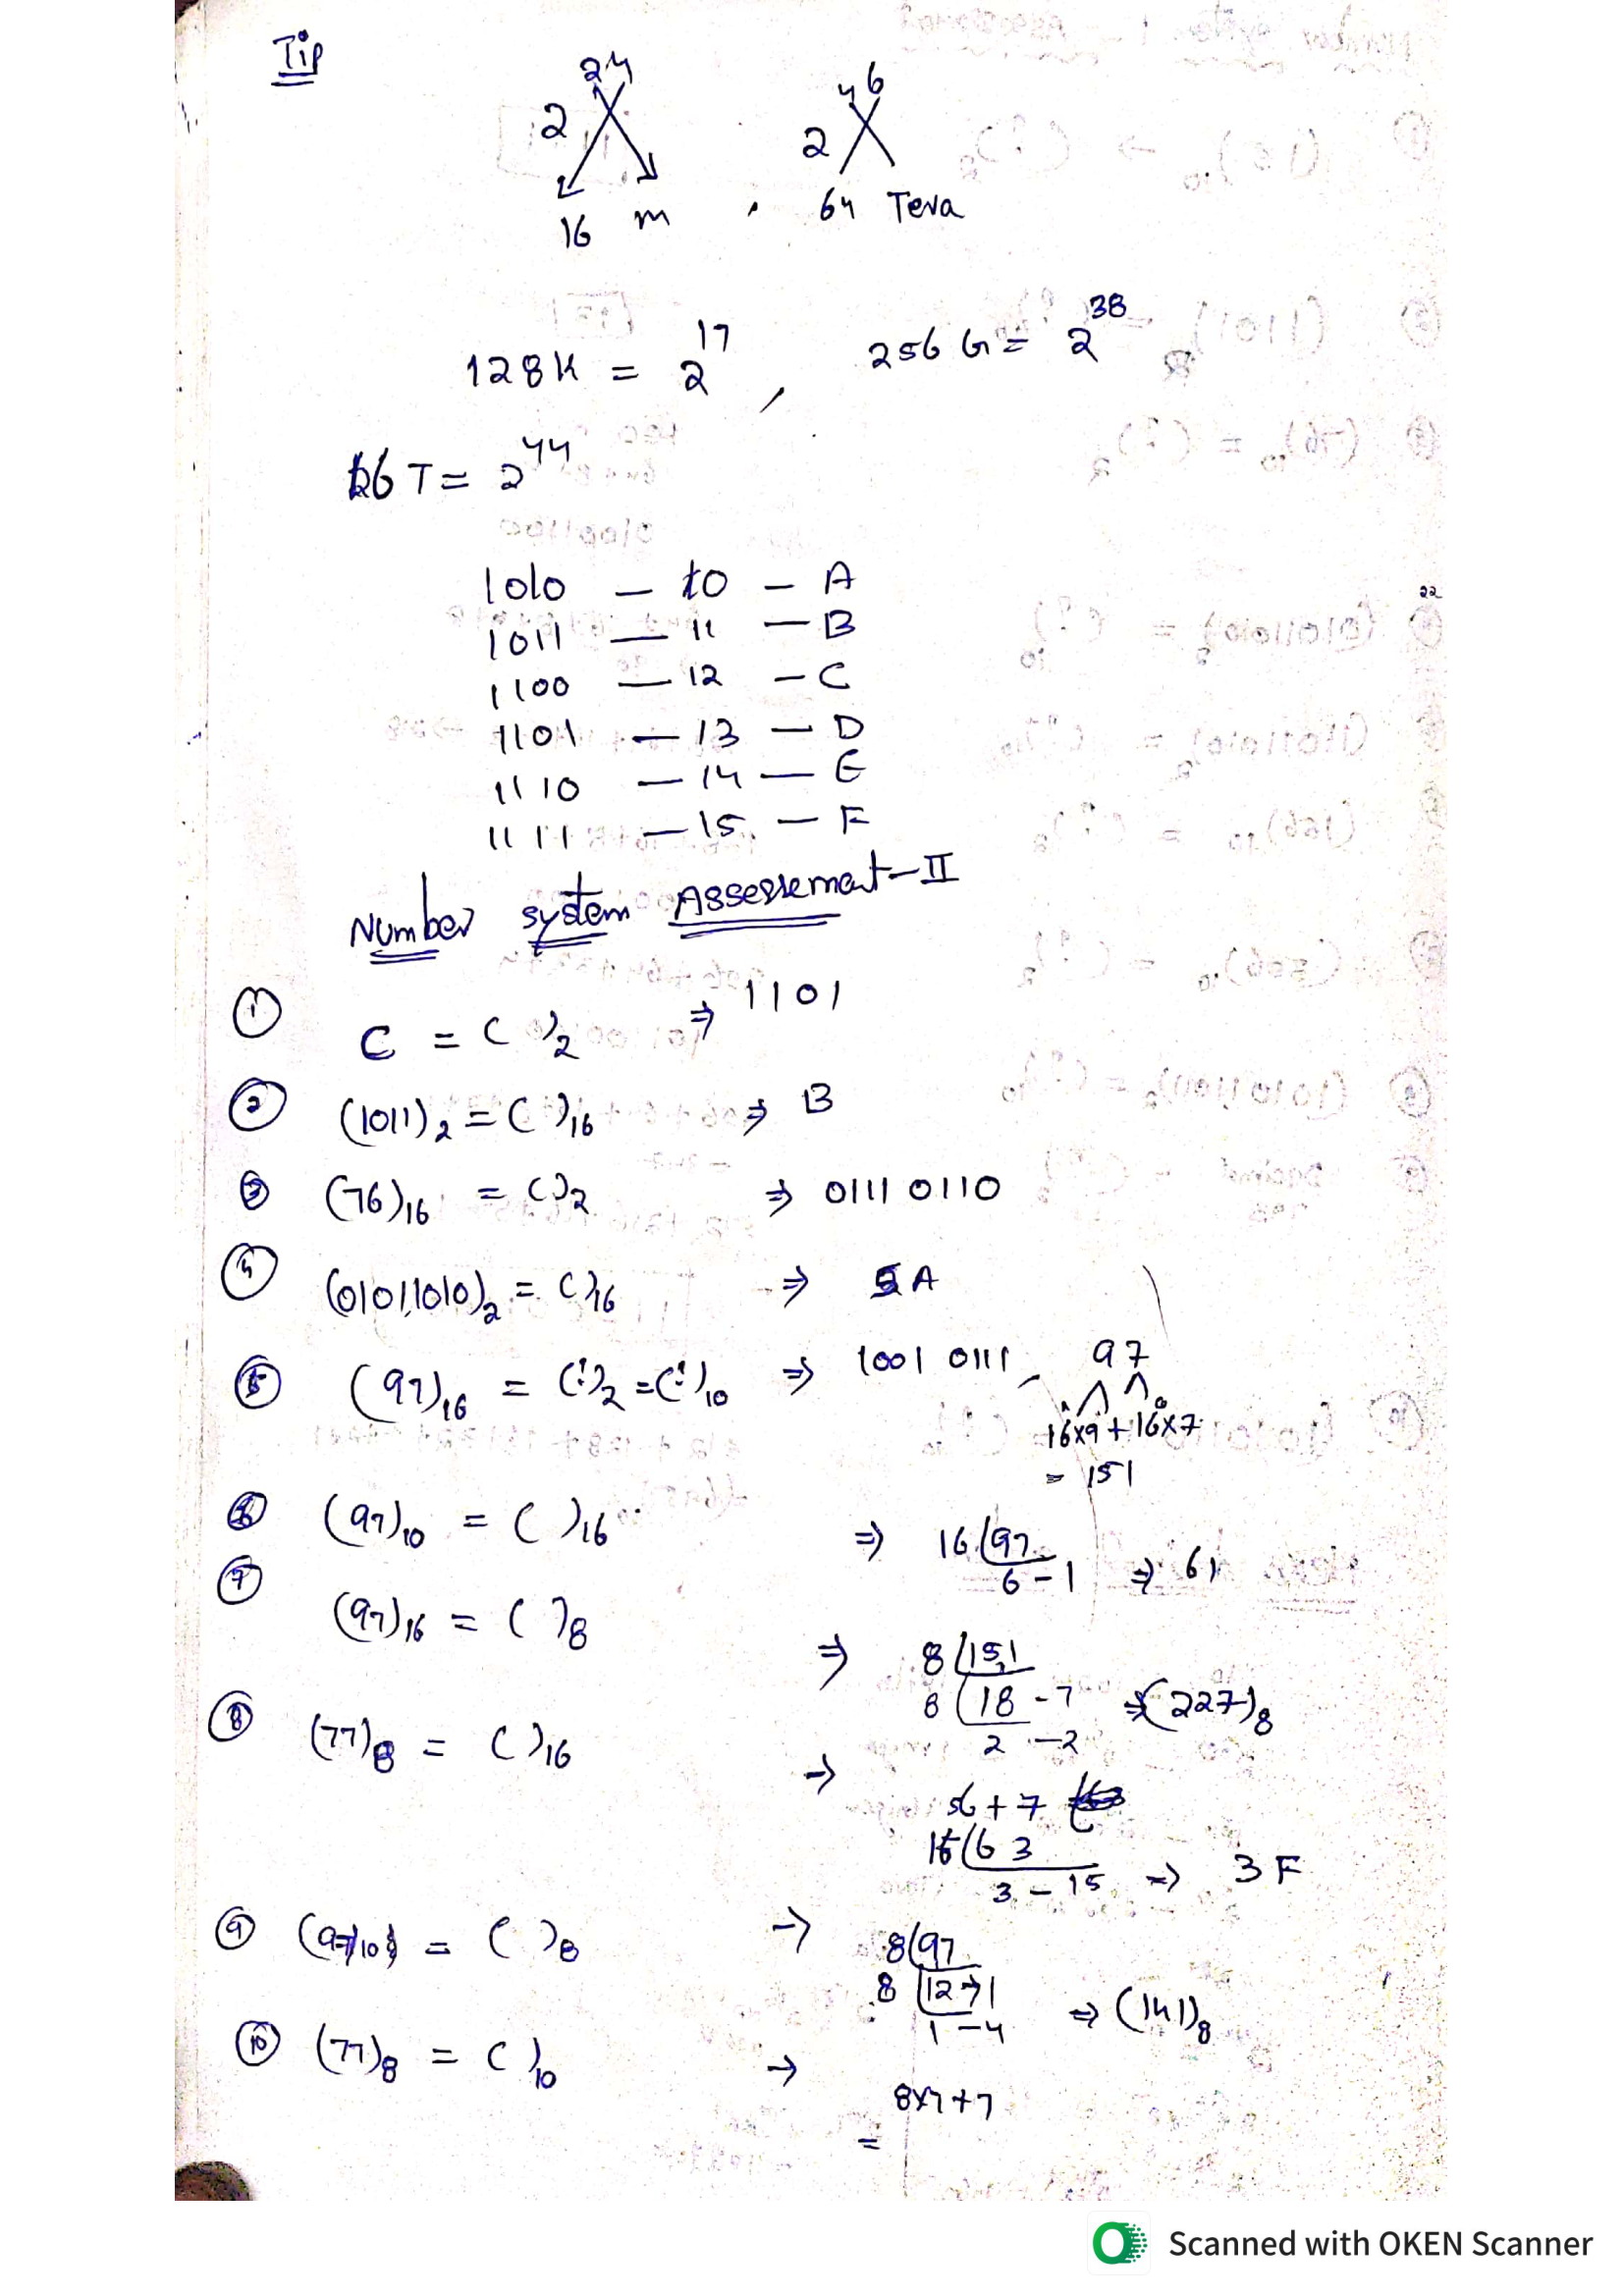 Tip
2^24 2^46
16 m , 64 Tera
128K = 2^17 , 256 G = 2^38
16 T = 2^44
1010 — 10 — A
1011 — 11 — B
1100 — 12 — C
1101 — 13 — D
1110 — 14 — E
1111 — 15 — F
Number system Assessement-II
① C = ( )2 ⇒ 1101
② (1011)2 = ( )16 ⇒ B
③ (76)16 = ( )2 ⇒ 0111 0110
④ (01011010)2 = ( )16 ⇒ 5A
⑤ (97)16 = (?)2 = (?)10 ⇒ 1001 0111, 97
16^1x9 + 16^0x7
= 151
⑥ (97)10 = ( )16 ⇒ 16 97
6 - 1 ⇒ 61
⑦ (97)16 = ( )8 ⇒ 8 151
8 18 - 7 ⇒ (227)8
2 - 2
⑧ (77)8 = ( )16 → 56 + 7
16 63
3 - 15 ⇒ 3F
⑨ (97)10 = ( )8 → 8 97
8 12 → 1
1 - 4 ⇒ (141)8
⑩ (77)8 = ( )10 → 8x7+7
=
Scanned with OKEN Scanner